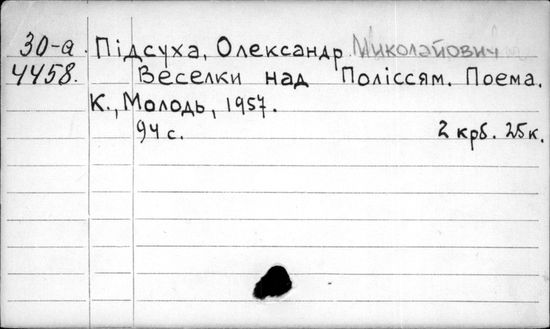 30-а. Підсуха, Олександр Миколайович
4458. Веселки над Поліссям. Поема.
К., Молодь, 1957.
94 с. 2 крб. 25к.